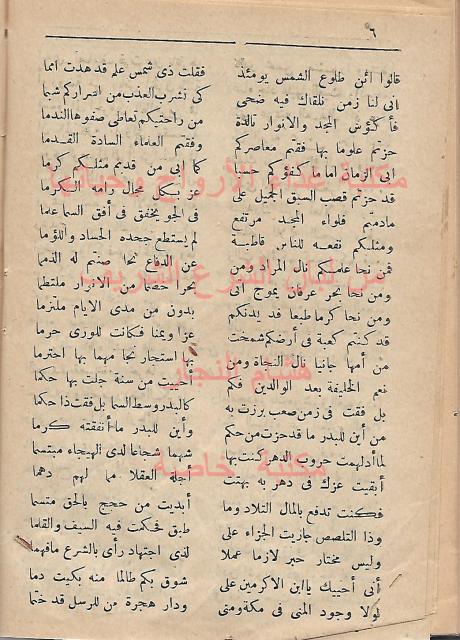 ٦
قالوا ائن طلوع الشمس يومئذ فقلت ذى شمس علم قد هدت امما
انى لنا زمن نلقاك فيه ضحى كى نشرب العذب من اسراركم شبما
فأ كؤش المجد والانوار تالدة من راحتيكم تعاطى صفوها الندما
حزتم علوما بها فقتم معاصركم وفقتم العلماء السادة القدما
ابى الزمان اما ما كفؤكم حسبا كما ابى من قديم مثلكم كرما
قد حزتم قصب السبق الجميل على عز بكل مجال رامه الكرما
مادمتم فلواء المجد مرتفع فى الجو يخفق فى أفق السما عاما
ومثلكم نفعه للناس قاطبة لم يستطع جحده الحساد واللؤما
فمن نحا عاسكم نال المراد ومن عن الدفاع نحا صنتم له الذمما
ومن نحا بحر عرفان يموج أتى بحرا خضما من الاسرار ملتطما
ومن نحا كرما طبعا قد يدنكم بدون من مدى الايام ملتزما
قد كنتم كعبة فى أرضكم شمخت عزا ويمنا فكانت للورى حرما
من أمها جانيا نال النجاة ومن بها استجار نحا مهما بها احترما
نعم الخليفة بعد الوالدين فكم أحييت من سنة جلت بها حكما
بل فقت فى زمن صعب برزت به كالبدر وسط السما بل فقت ذا حكما
من أين للبدر ما قد حزت من حكم وأين للبدر ما أنفقته كرما
لما أدلهمت حروب الدهر كنت بها شهما شجاعا لدى الهيجاء مبتسما
أبقيت عزك فى دهر به بهتت أجلة العقلا مما لهم دهما
فكنت تدفع بالمال التلاد وما أبديت من حجج بالحق متسما
وذا التلصص جاريت الجزاء على طبق فحكمت فيه السيف والقلما
وليس مختار حبر لازما عملا لذى اجتهاد رأى بالشرع مافهما
أنى أحييك يا ابن الاكرمين على شوق بكم طالما منه بكيت دما
لولا وجود المنى فى مكة ومنى ودار هجرة من للرسل قد ختما
مكتبة غذاء الأرواح وحياتها
من لبان الشرع الشريف
هشام النجار
مكتبة خاصة